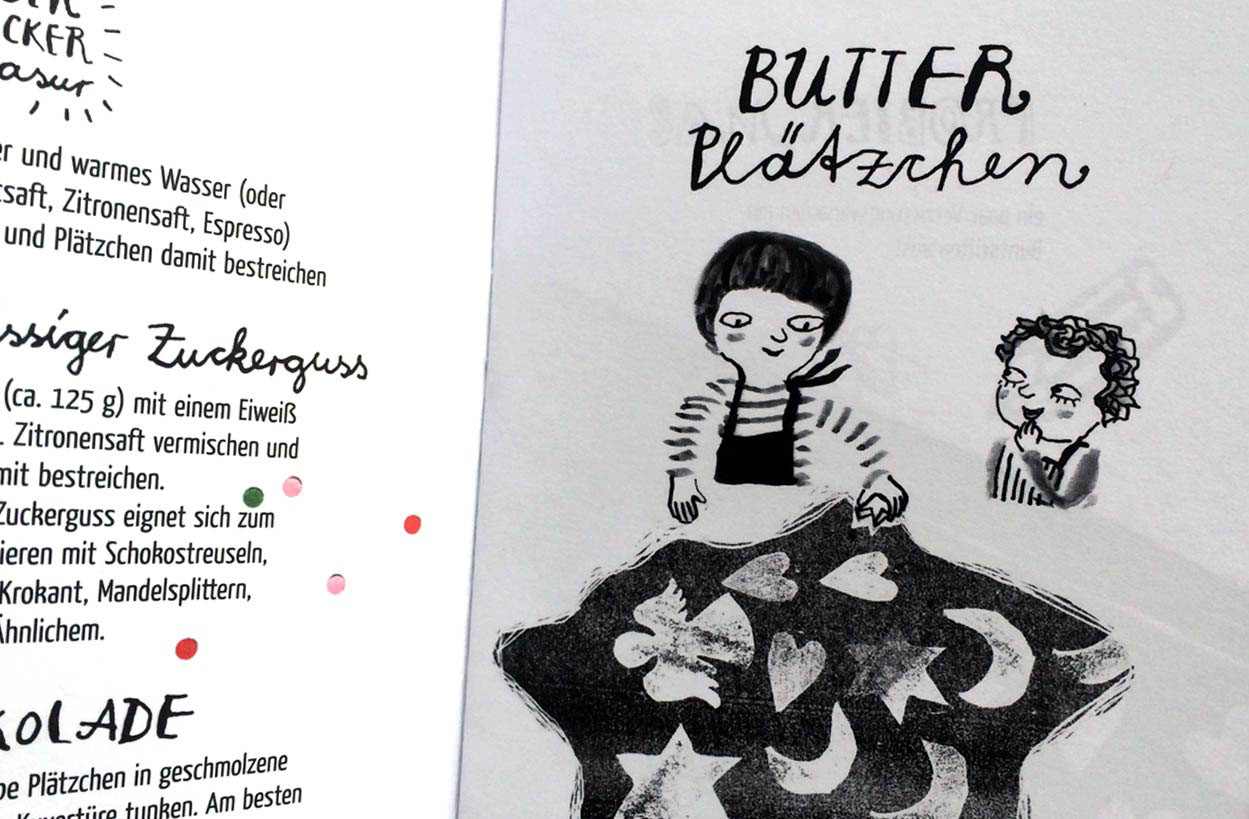 CKER
asur
er und warmes Wasser (oder
tsaft, Zitronensaft, Espresso)
und Plätzchen damit bestreichen
ssiger Zuckerguss
(ca. 125 g) mit einem Eiweiß
. Zitronensaft vermischen und
mit bestreichen.
Zuckerguss eignet sich zum
ieren mit Schokostreuseln,
Krokant, Mandelsplittern,
Ähnlichem.
KOLADE
be Plätzchen in geschmolzene
Kuvertüre tunken. Am besten
BUTTER
Plätzchen